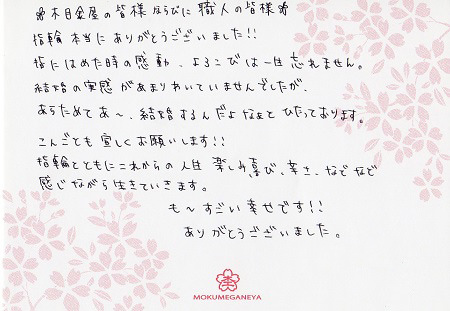 ❀木目金屋の皆様ならびに職人の皆様❀
指輪本当にありがとうございました!!
指にはめた時の感動、よろこびは一生忘れません。
結婚の実感があまりわいていませんでしたが、
あらためてあ〜、結婚するんだよなぁと ひたっております。
こんごとも宜しくお願いします!!
指輪とともにこれからの人生 楽しみ、喜び、幸さ、などなど
感じながら生きていきます。
も〜すごい幸せです!!
ありがとうございました。
MOKUMEGANEYA